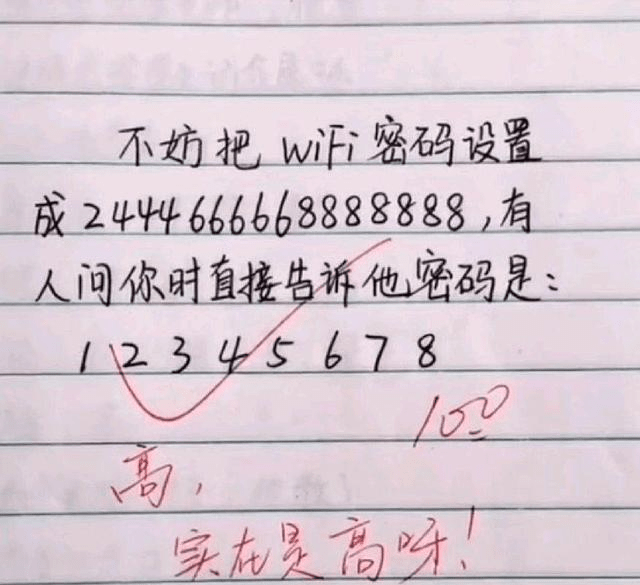 不妨把 WiFi 密码设置
成2444666668888888,有
人问你时直接告诉他密码是:
1 2 3 4 5 6 7 8
100
高,
实在是高呀!